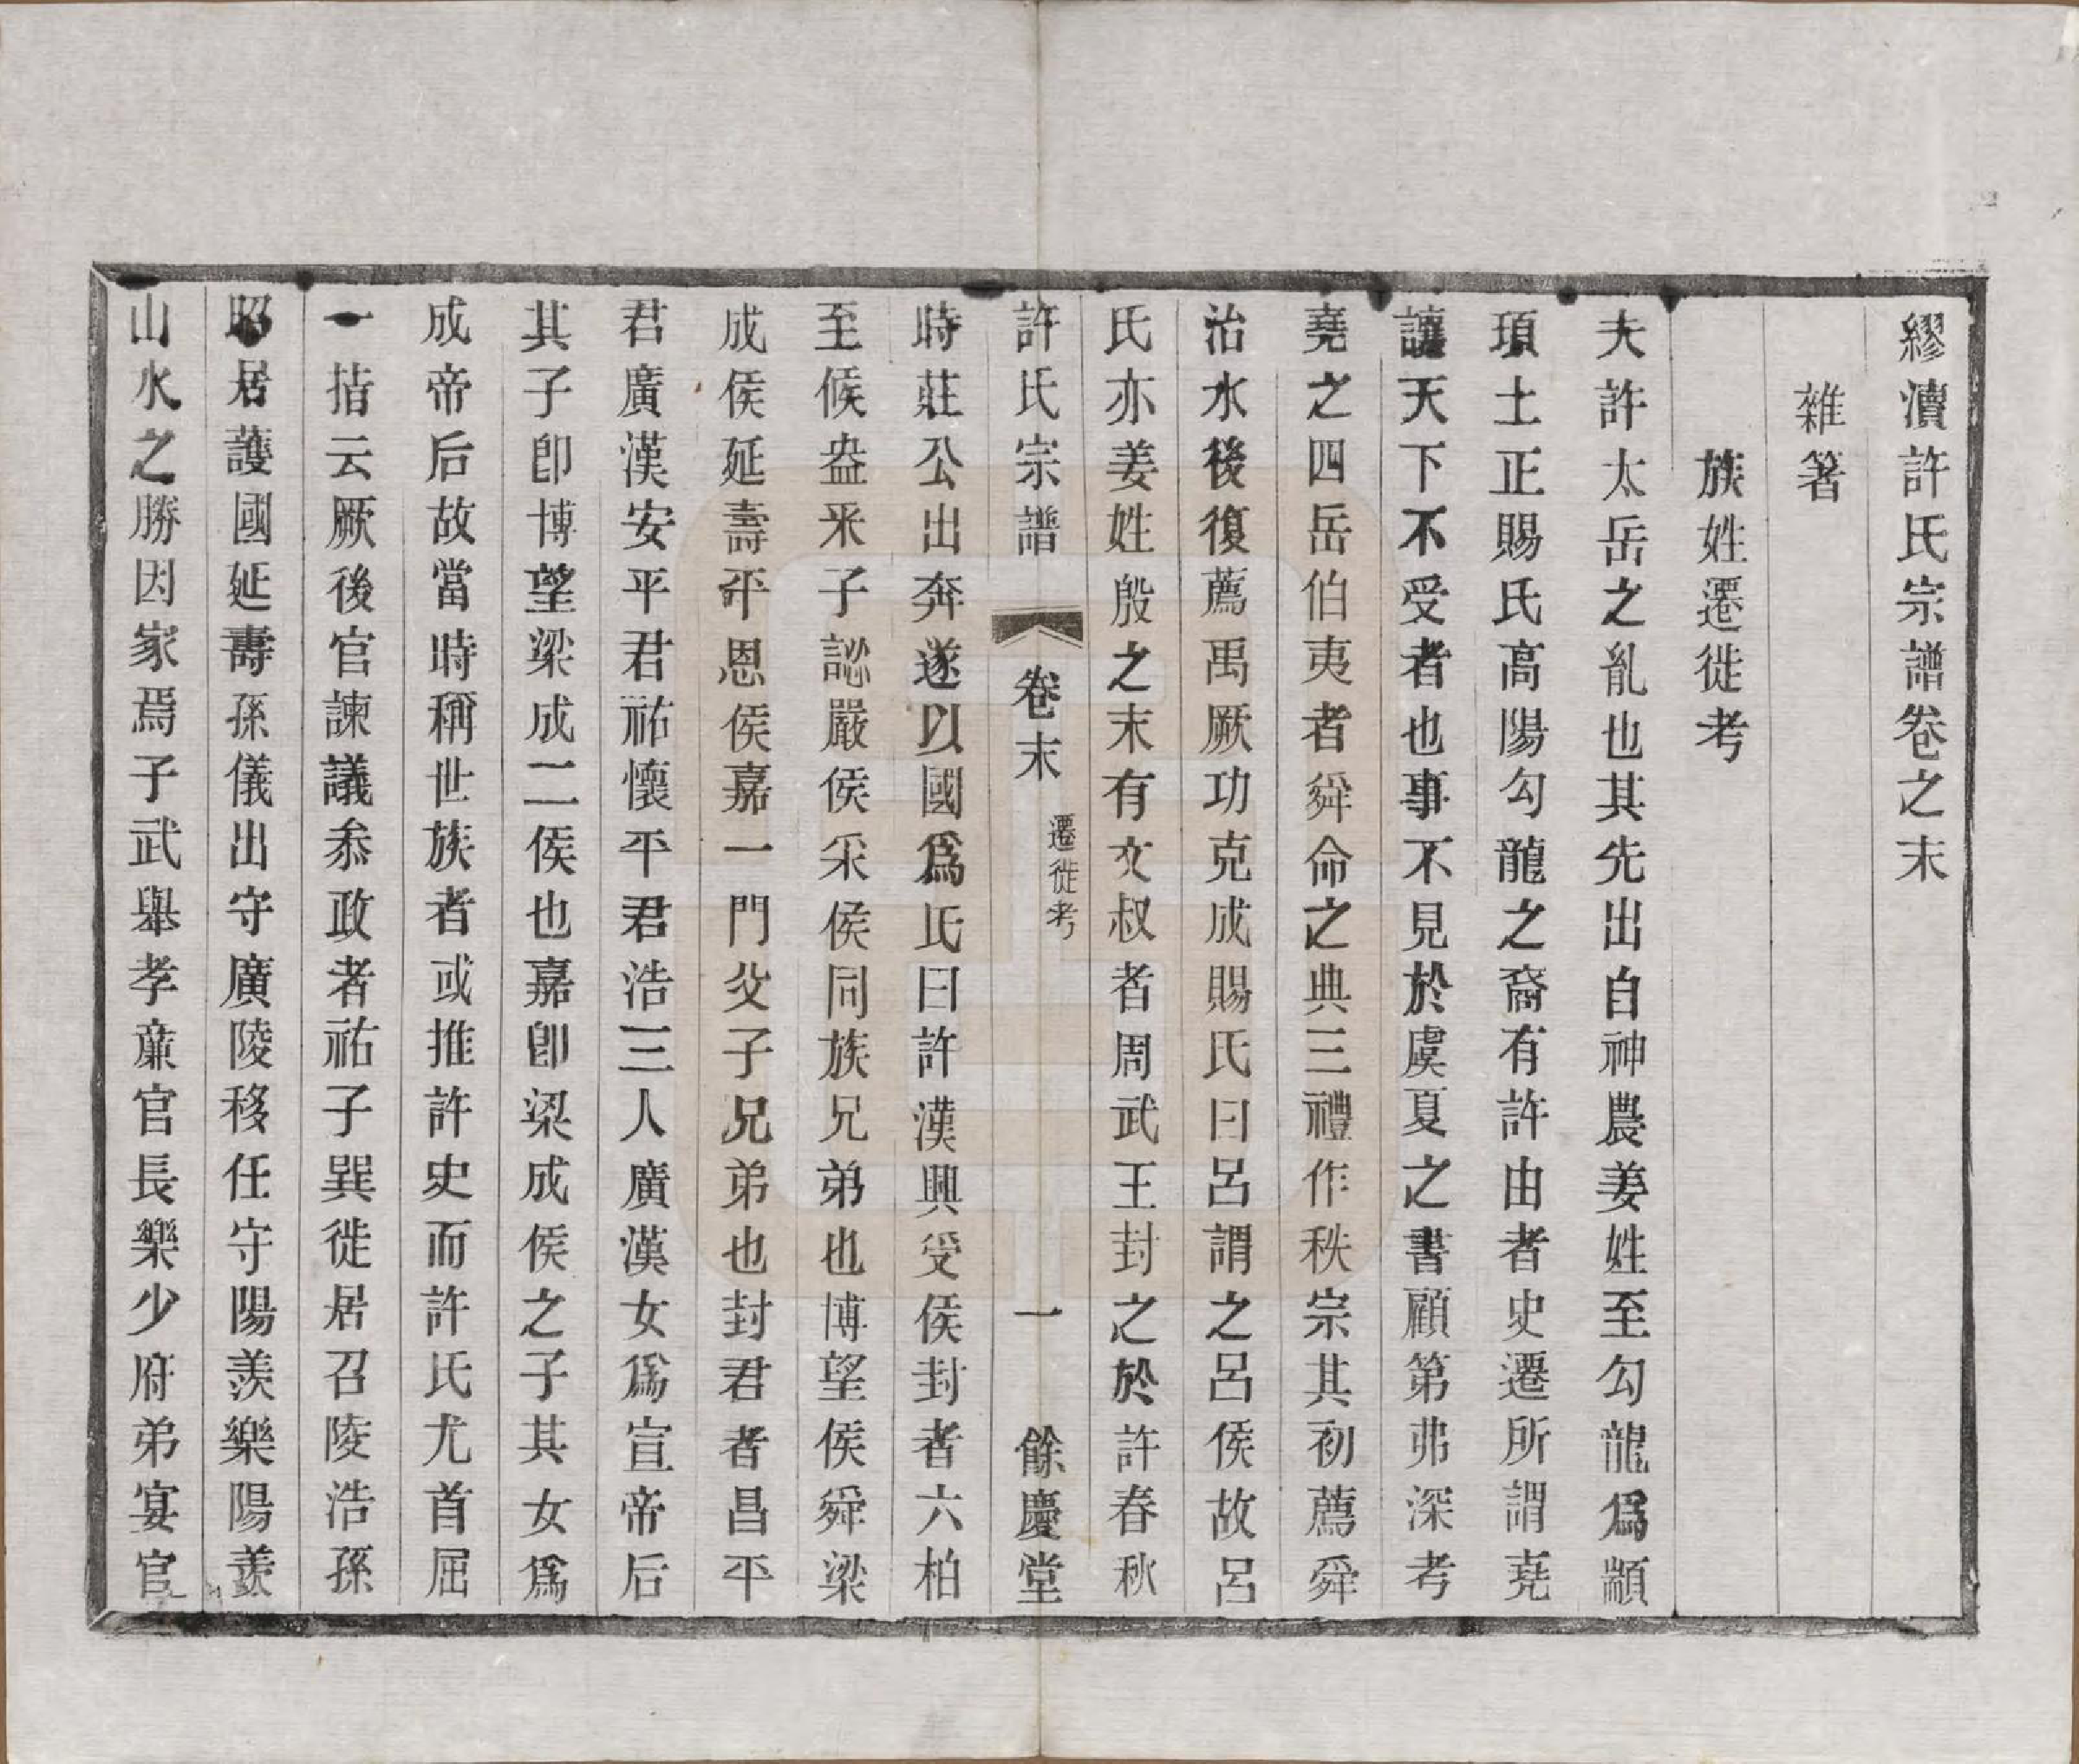 繆瀆許氏宗譜卷之末
雜箸
族姓遷徙考
夫許太岳之亂也其先出自神農姜姓至勾龍爲顓
頊土正賜氏高陽勾龍之裔有許由者史遷所謂堯
讓天下不受者也事不見於虞夏之書顧第弗深考
堯之四岳伯夷者舜命之典三禮作秩宗其初薦舜
治水後復薦禹厥功克成賜氏曰呂謂之呂侯故呂
氏亦姜姓殷之末有文叔者周武王封之於許春秋
許氏宗譜 卷末 遷徙考 一 餘慶堂
時莊公出奔遂以國爲氏曰許漢興受侯封者六柏
至候盎釆子認嚴侯采侯同族兄弟也博望侯舜梁
成侯延壽平恩侯嘉一門父子兄弟也封君者昌平
君廣漢安平君祐懷平君浩三人廣漢女爲宣帝后
其子卽博望梁成二侯也嘉卽梁成侯之子其女爲
成帝后故當時稱世族者或推許史而許氏尤首屈
一指云厥後官諫議叅政者祐子巽徙居召陵浩孫
昭居護國延壽孫儀出守廣陵移任守陽羨樂陽羨
山水之勝因家焉子武舉孝亷官長樂少府弟宴官